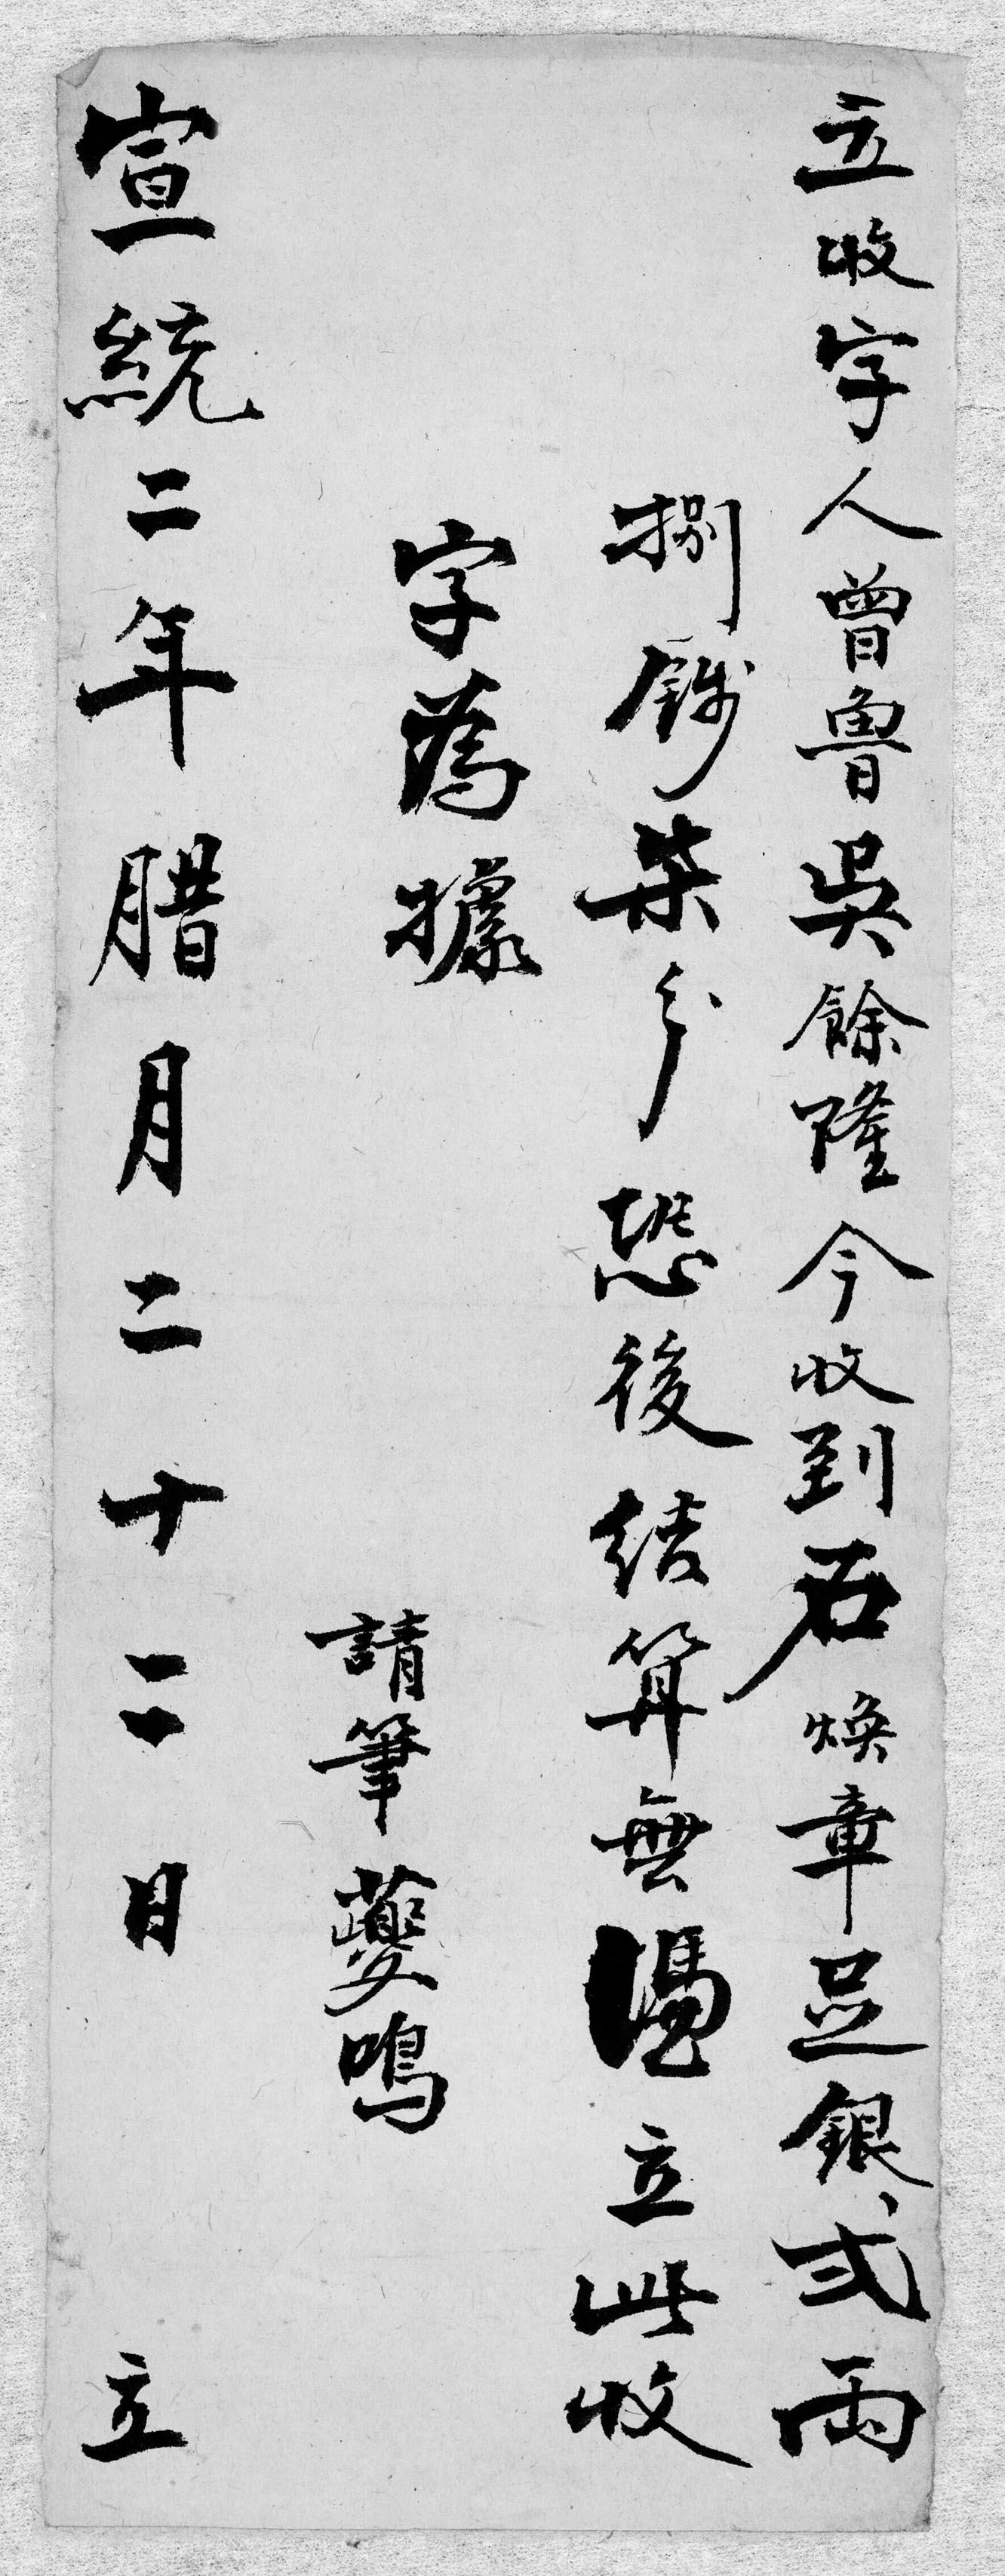 立收字人曾魯吳餘隆今收到石煥章足銀弍両
捌錢柒分恐後結算無憑立此收
字為據
請筆夔鳴
宣統二年腊月二十二日立